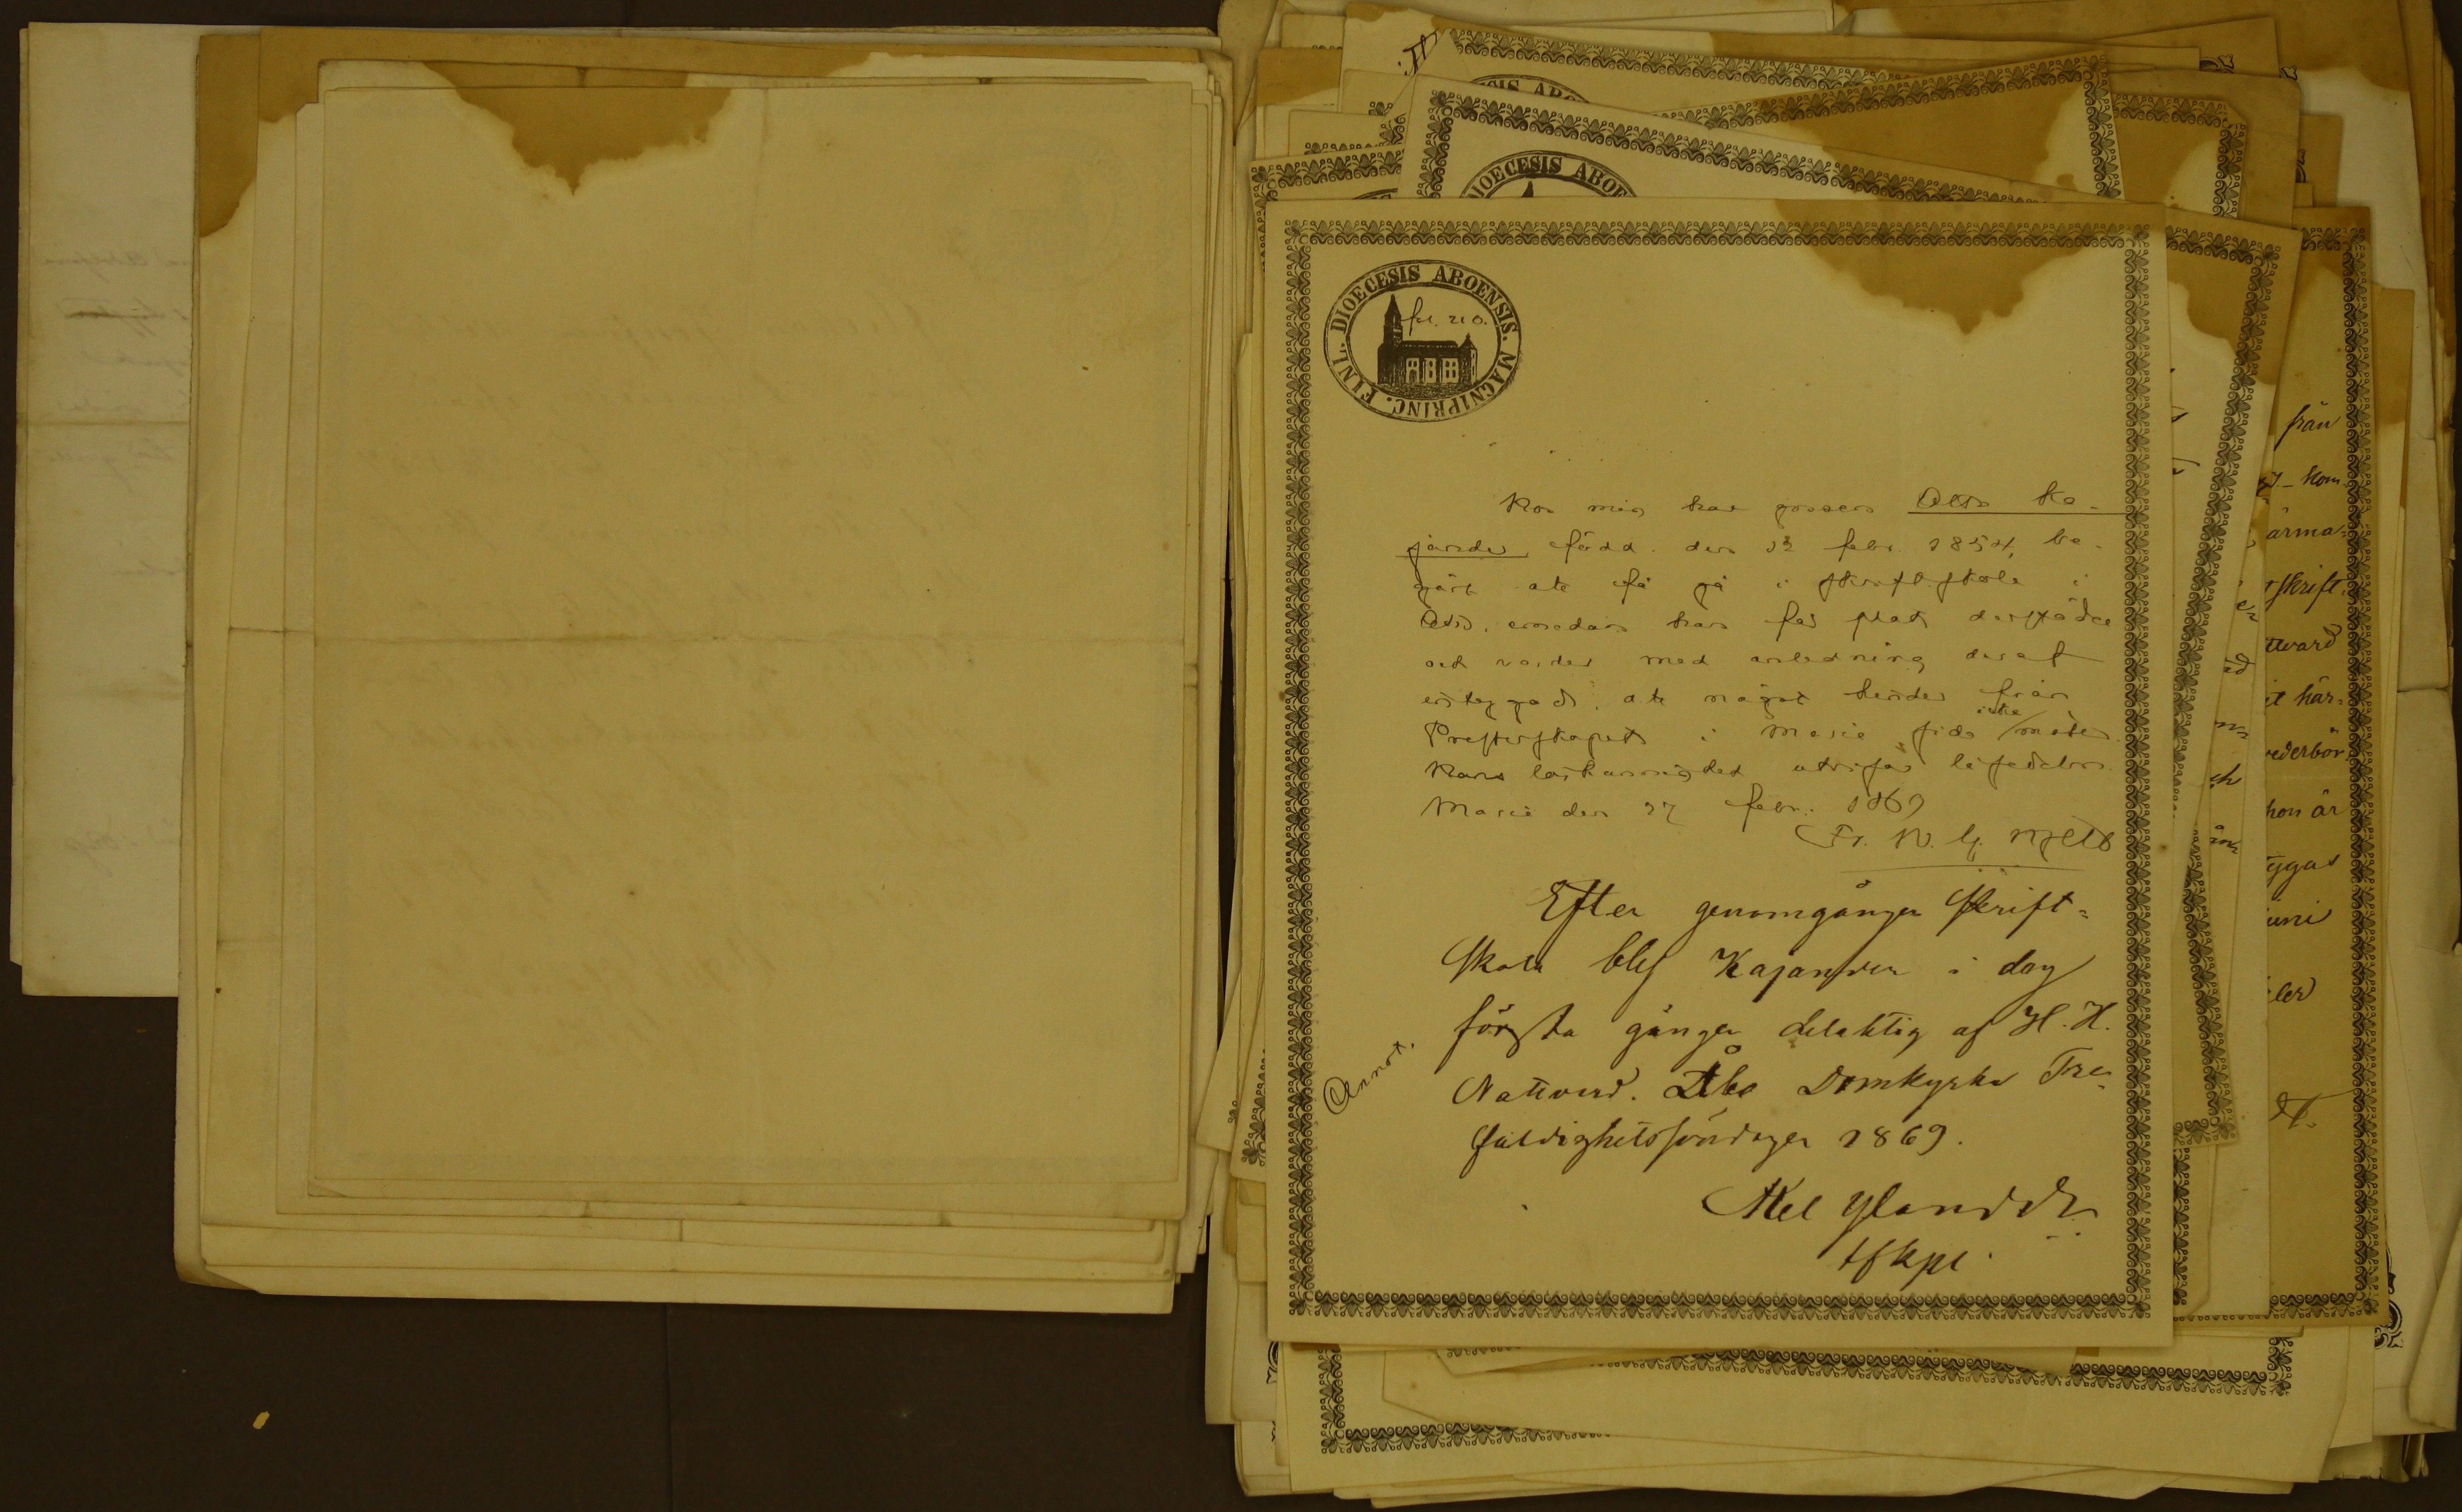 DIOECESIS ABOENSIS. MAGNIPRINC. FINL.
fol. 210.
Hos mig har gossen Otto Ka-
jander, född den 12 febr. 1854, be-
gärt att få gå i skriftskola i
Åbo, emedan han får plats derstädes
och varder med anledning deraf
intygadt, att något hinder från
Presterskapets i Marie sida icke möter.
Hans läskunnighet utvisas
Marie den 27 febr. 1869
Fr. W. G. Hjelt
Efter genomgången Skrift-
skola blef Kajander i dag
första gången delaktig af H. H.
Nattvard. Åbo Domkyrka Tre-
faldighetssöndagen 1869.
Annot.
Axel
DIOECESIS ABOE
från
kom-
ärma-
skrift-
ttvard
här-
vederbör
hon är
yggas
juni